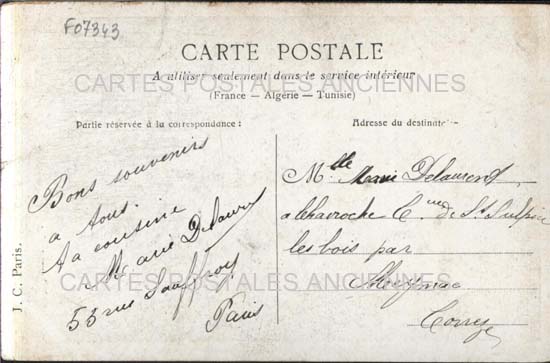 F07343
CARTE POSTALE
A utiliser seulement dans le service intérieur
CARTES POSTALES ANCIENNES
(France — Algérie — Tunisie)
Partie réservée à la correspondance :
Adresse du destinat
Bons souvenirs
a tous.
Ta cousine
Marie Delaur
53 rue Sauffroy
Paris
Mlle Marie Delaurent
a lehavroche Cne de St Sulpice
les bois par
Meymac
Correze
CARTES POSTALES ANCIENNES
J. C. Paris.